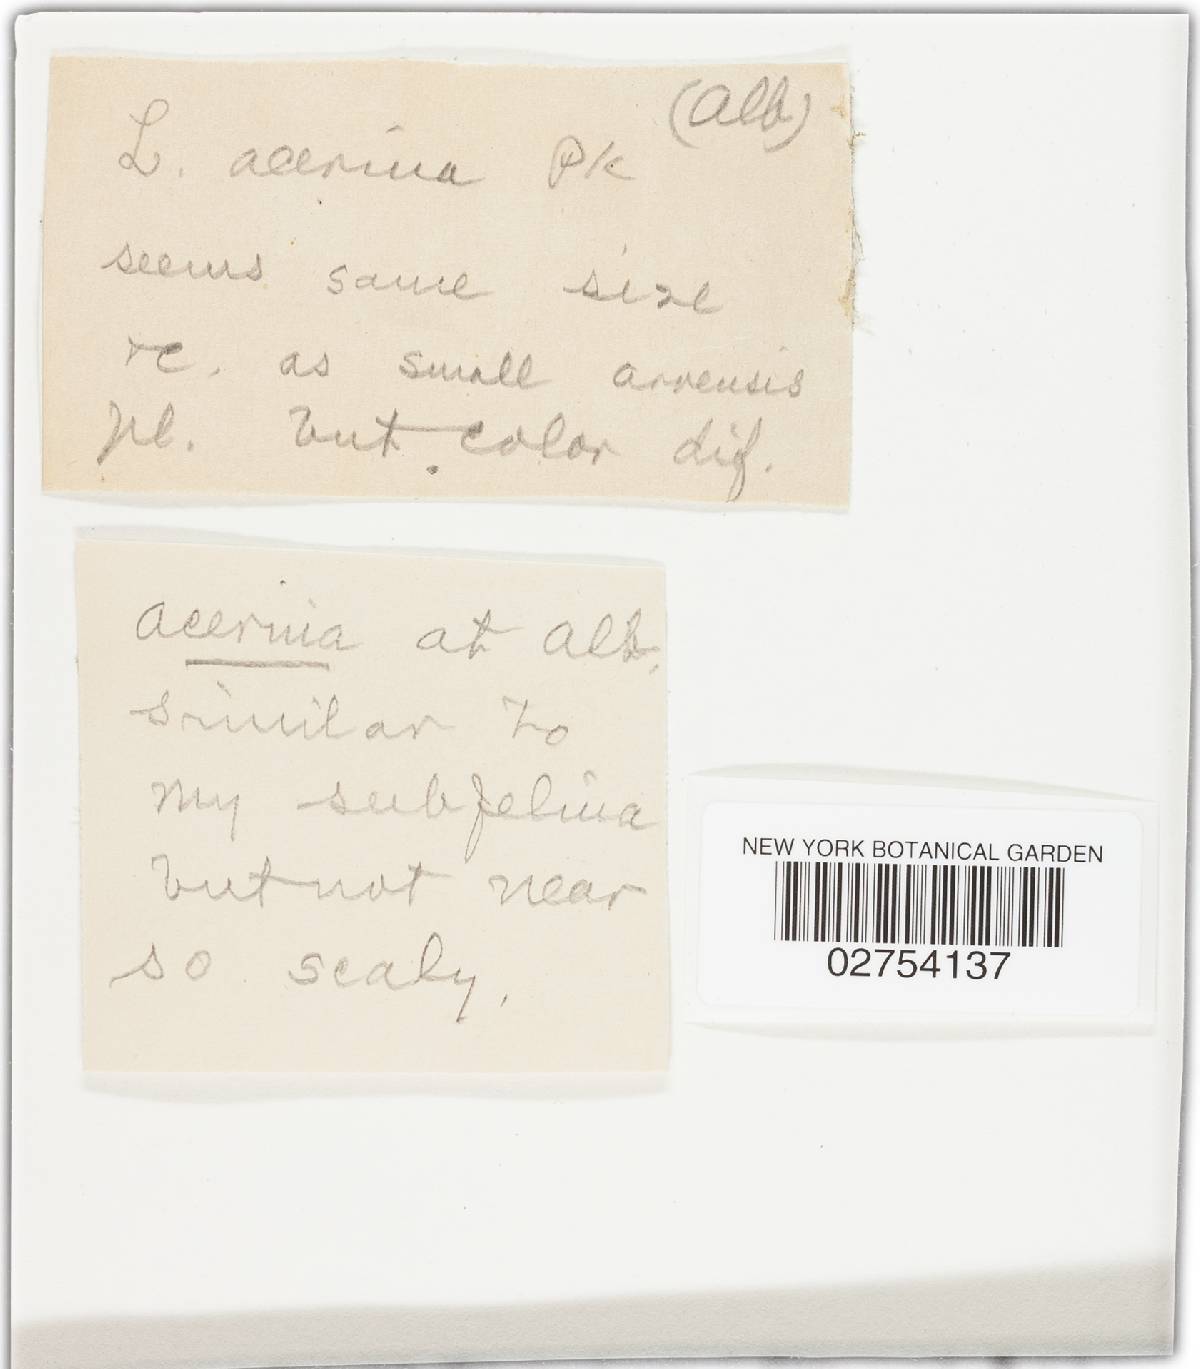 (Alb)
L. acerina Pk
seems same size
&c. as small arvensis
pl. but color dif.
acerina at Alb.
similar to
my subfelina
but not near
so scaly.
NEW YORK BOTANICAL GARDEN
02754137